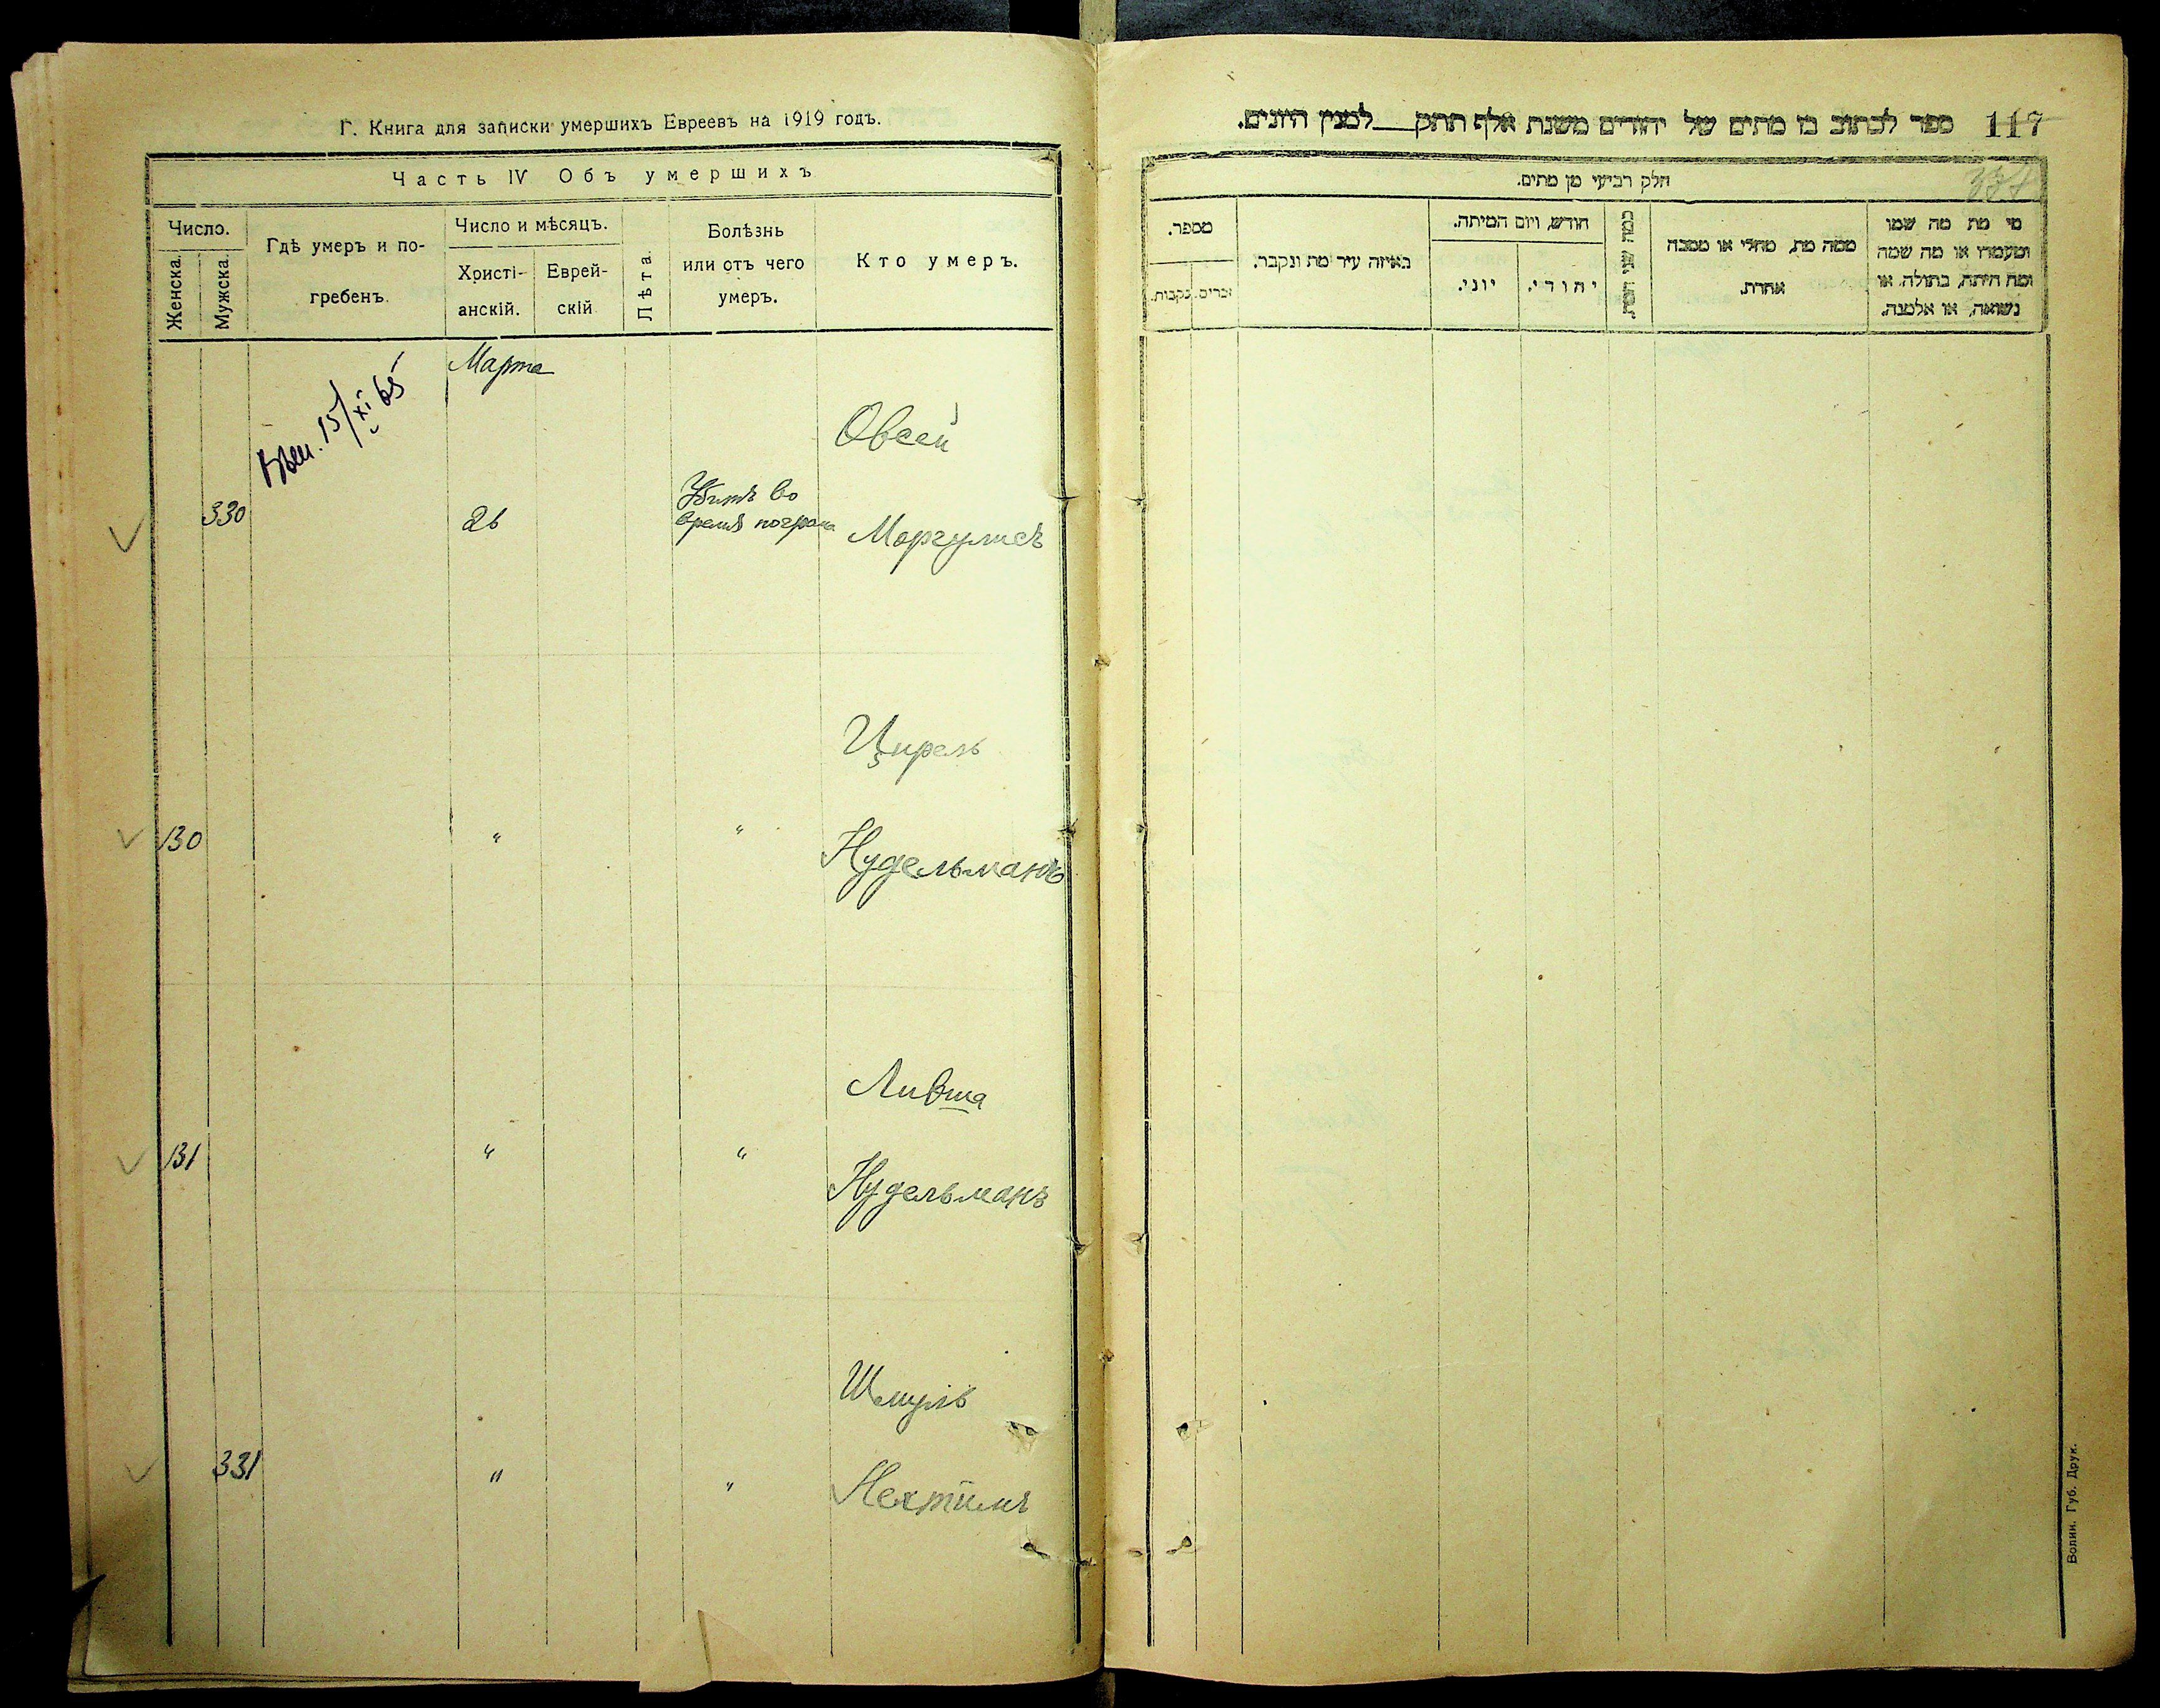 Г. Книга для записки умершихъ Евреевъ на 1919 годъ.
Часть IV Объ умершихъ
Число.
Женска.
Мужска.
Гдѣ умеръ и по-
гребенъ.
Число и мѣсяцъ.
Христі-
анскій.
Еврей-
скій
Лѣта.
Болѣзнь
или отъ чего
умеръ.
Кто умеръ.
Марта
15/XI 65
Овсей
330
26
Убитъ во
время погрома
Моргулисъ
Цирель
130
"
"
Нудельманъ
Ливша
131
"
"
Нудельманъ
Шмуль
331
"
"
ספר לכתוב בו מתים של יהודים משנת אלף תתק__למנין היונים.
117
חלק רביעי מן מתים.
מספר.
זכרים.
נקבות.
באיזה עיר מת ונקבר.
חודש, ויום המיתה.
יוני.
יהודי.
כמה שני המת.
ממה מת, מחלי או ממכה
אחרת.
מי מת מה שמו
ומעמדו או מה שמה
ומה היתה, בתולה, או
נשואה, או אלמנה.
Волин. Губ. Друк.